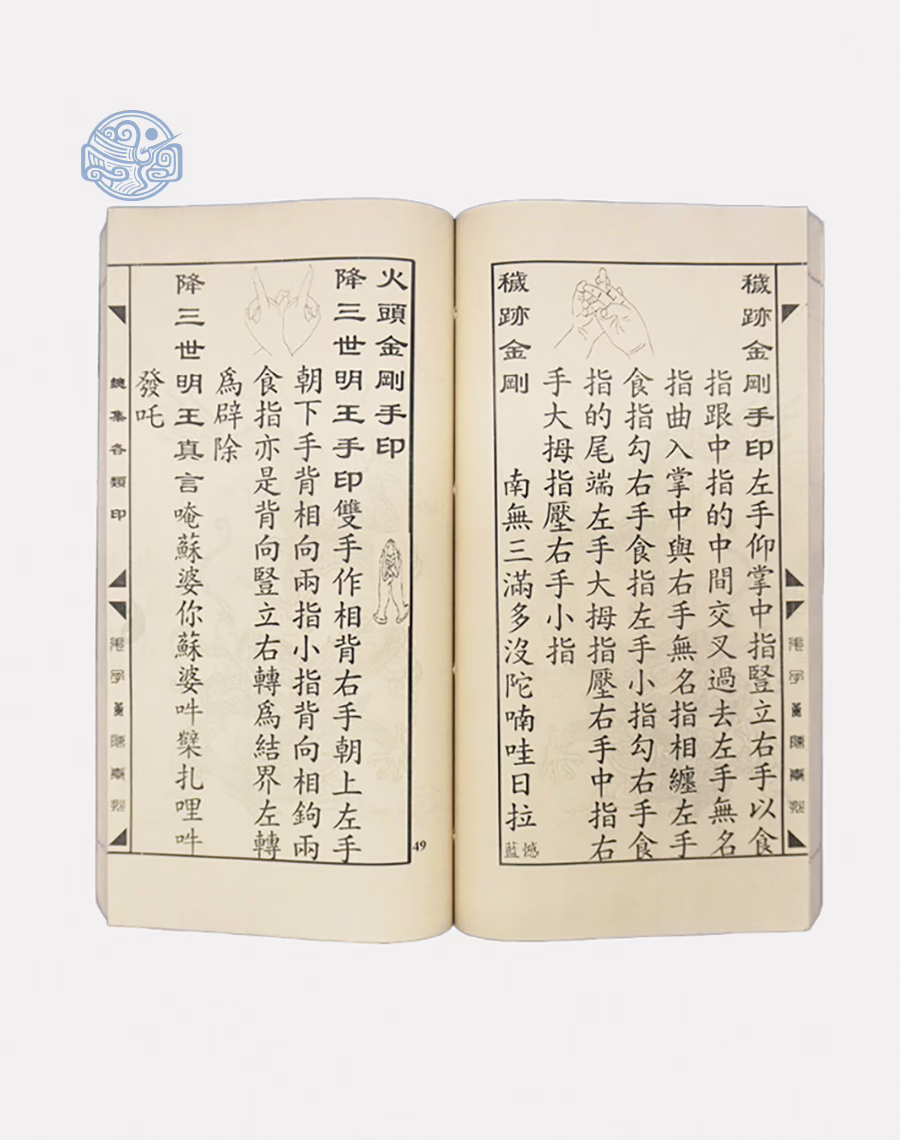 穢跡金剛手印左手仰掌中指豎立右手以食
指跟中指的中間交叉過去左手無名
指曲入掌中與右手無名指相纏左手
食指勾右手食指左手小指勾右手食
指的尾端左手大拇指壓右手中指右
手大拇指壓右手小指
穢跡金剛
南無三滿多沒陀喃哇日拉
藍憾
火頭金剛手印
降三世明王手印雙手作相背右手朝上左手
朝下手背相向兩指小指背向相鉤兩
食指亦是背向豎立右轉為結界左轉
為辟除
降三世明王真言唵蘇婆你蘇婆吽㘑扎哩吽
發吒
集各類印
49